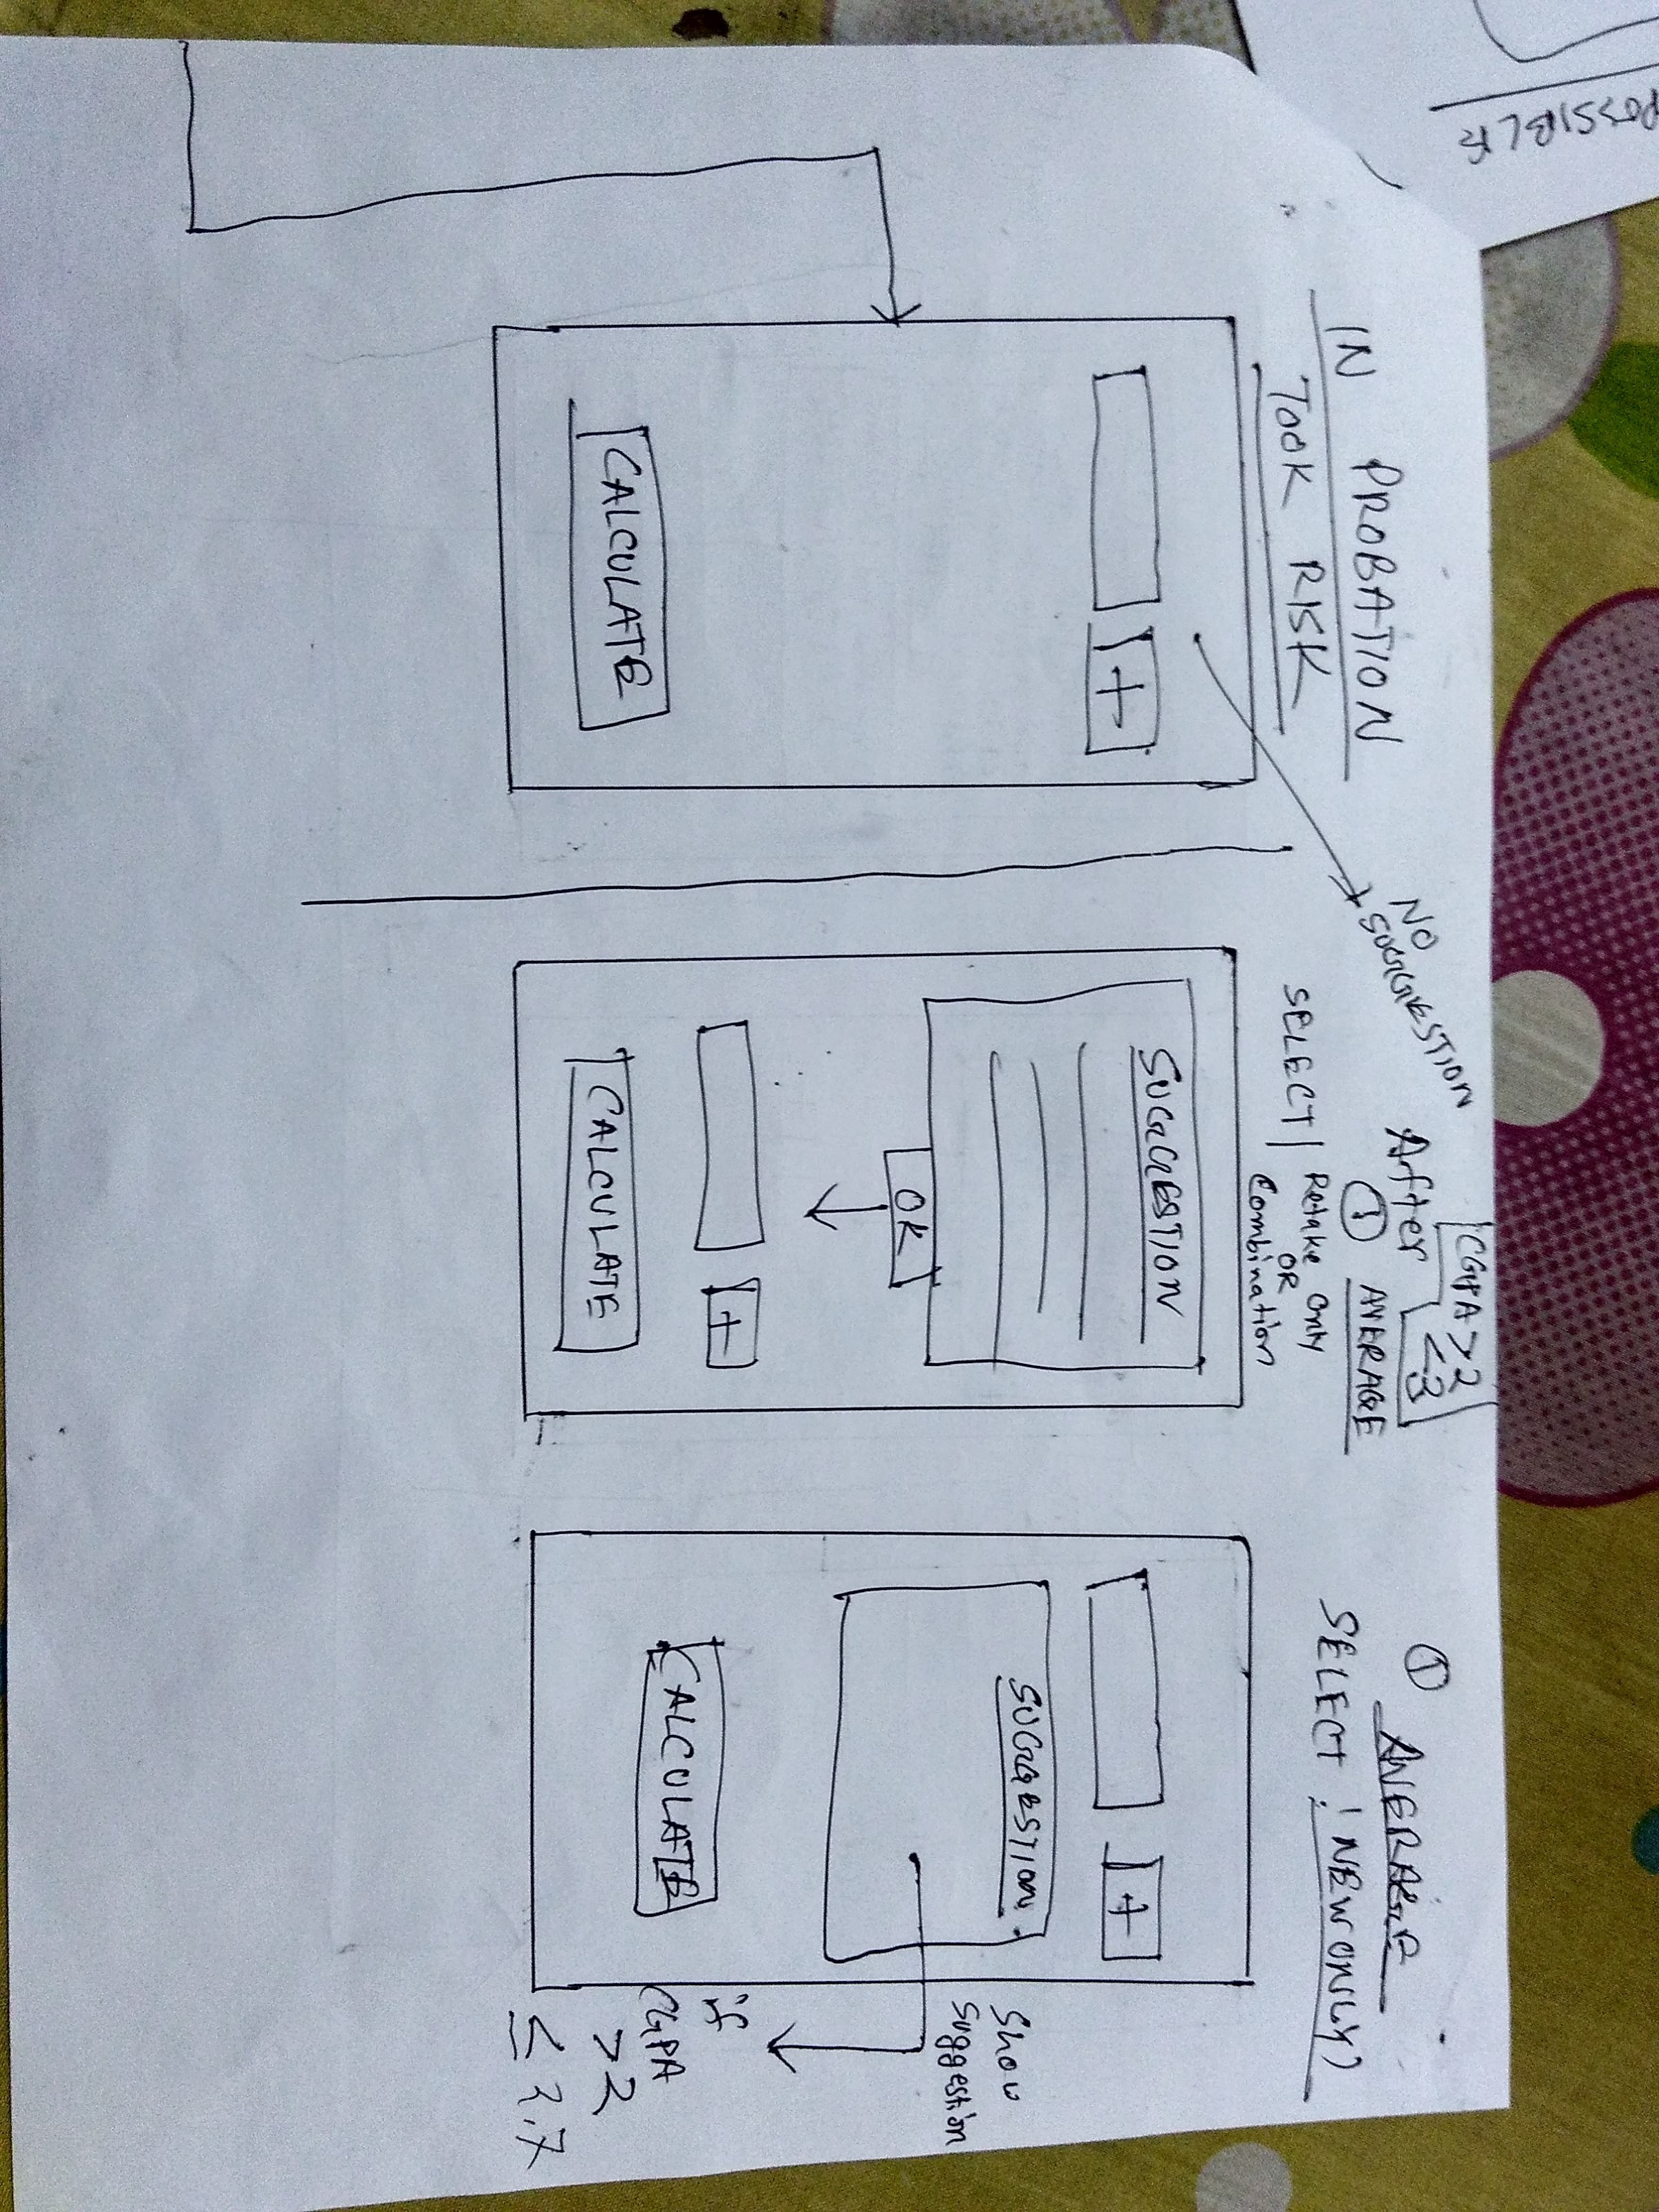 IN PROBATION
TOOK RISK
NO
SUGGESTION
+
CALCULATE
CGPA > 2
< 3
After
① AVERAGE
SELECT | Retake Only
OR
Combination
SUGGESTION
OK
+
CALCULATE
①
AVERAGE
SELECT ! NEW ONLY)
+
SUGGESTION
CALCULATE
Show
Suggestion
if
CGPA
>2